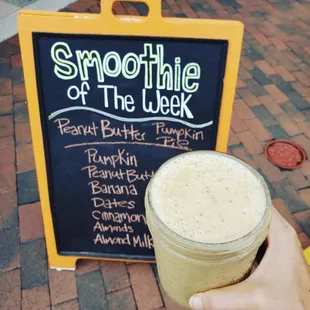 Smoothie
of The Week
Peanut Butter Pumpkin
Pie
Pumpkin
Peanut Butter
Banana
Dates
Cinnamon
Almonds
Almond Milk